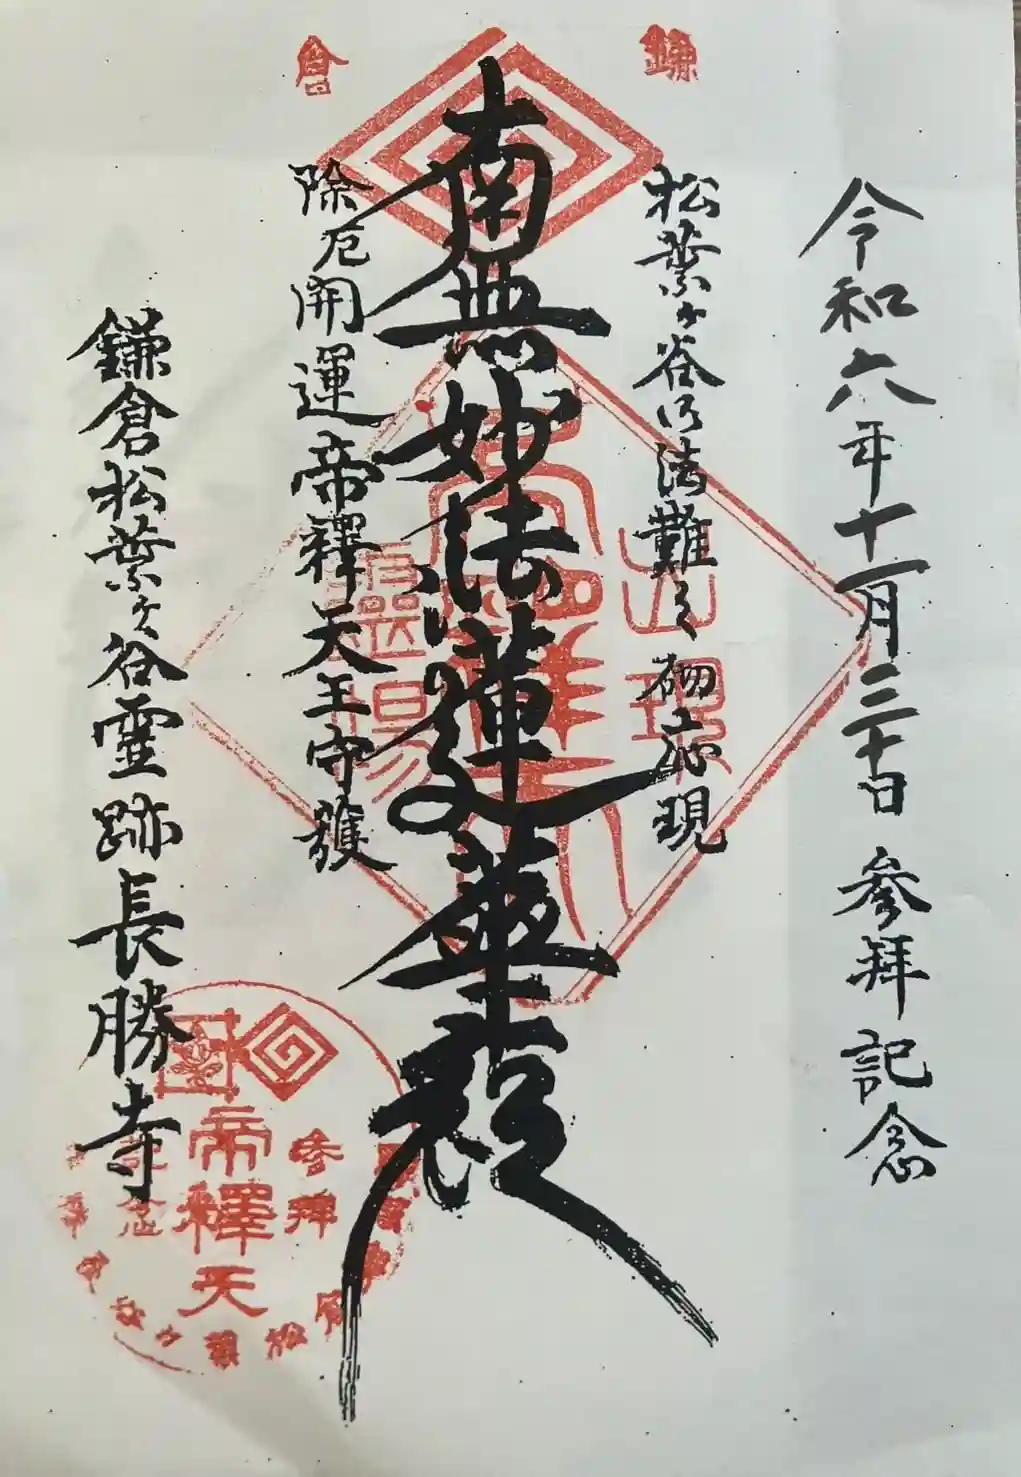 鎌倉
令和六年十一月三十日 参拝記念
松葉ヶ谷御法難之砌応現
南無妙法蓮華経
除厄開運帝釋天王守護
鎌倉松葉ヶ谷霊跡長勝寺
出現
帝釋天
霊場
参拝
帝釋天
記念